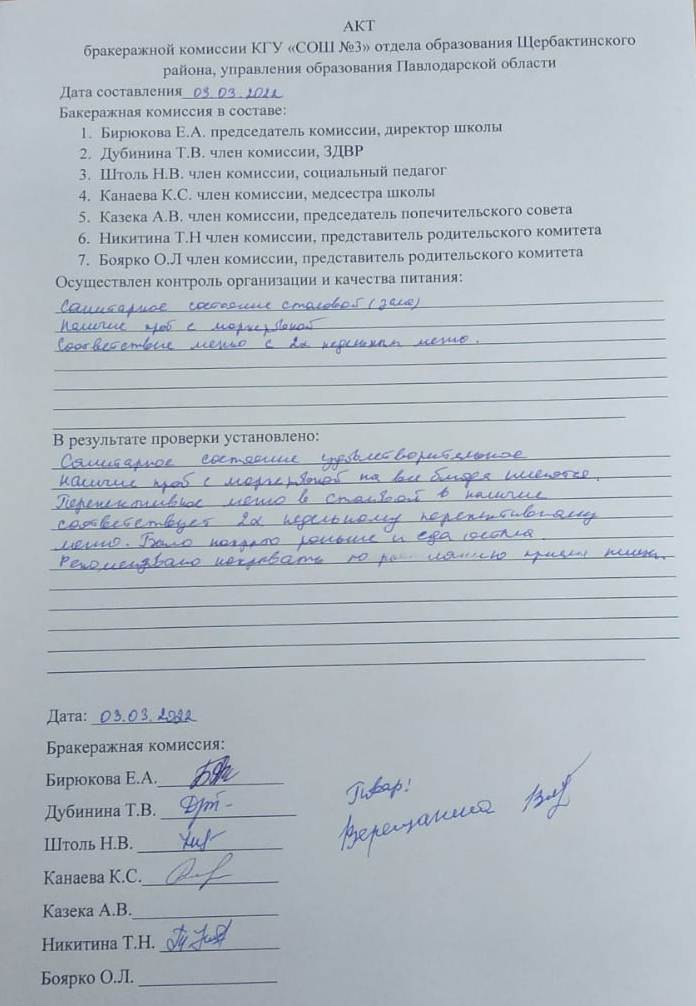 АКТ
бракеражной комиссии КГУ «СОШ №3» отдела образования Щербактинского
района, управления образования Павлодарской области
Дата составления 03.03.2022
Бакеражная комиссия в составе:
1. Бирюкова Е.А. председатель комиссии, директор школы
2. Дубинина Т.В. член комиссии, ЗДВР
3. Штоль Н.В. член комиссии, социальный педагог
4. Канаева К.С. член комиссии, медсестра школы
5. Казека А.В. член комиссии, председатель попечительского совета
6. Никитина Т.Н член комиссии, представитель родительского комитета
7. Боярко О.Л член комиссии, представитель родительского комитета
Осуществлен контроль организации и качества питания:
Санитарное состояние столовой (зала)
Наличие проб с маркировкой
Соответствие меню с 2х недельным меню.
В результате проверки установлено:
Санитарное состояние удовлетворительное
Наличие проб с маркировкой на все блюда имеются.
Перспективное меню в столовой в наличие
соответствует 2х недельному перспективному
меню. Было накрыто раньше и еда остыла.
Рекомендовано накрывать по приема пищи.
Дата: 03.03.2022
Бракеражная комиссия:
Бирюкова Е.А.
Дубинина Т.В.
Штоль Н.В.
Канаева К.С.
Казека А.В.
Никитина Т.Н.
Боярко О.Л.
Повар!
Верещагина